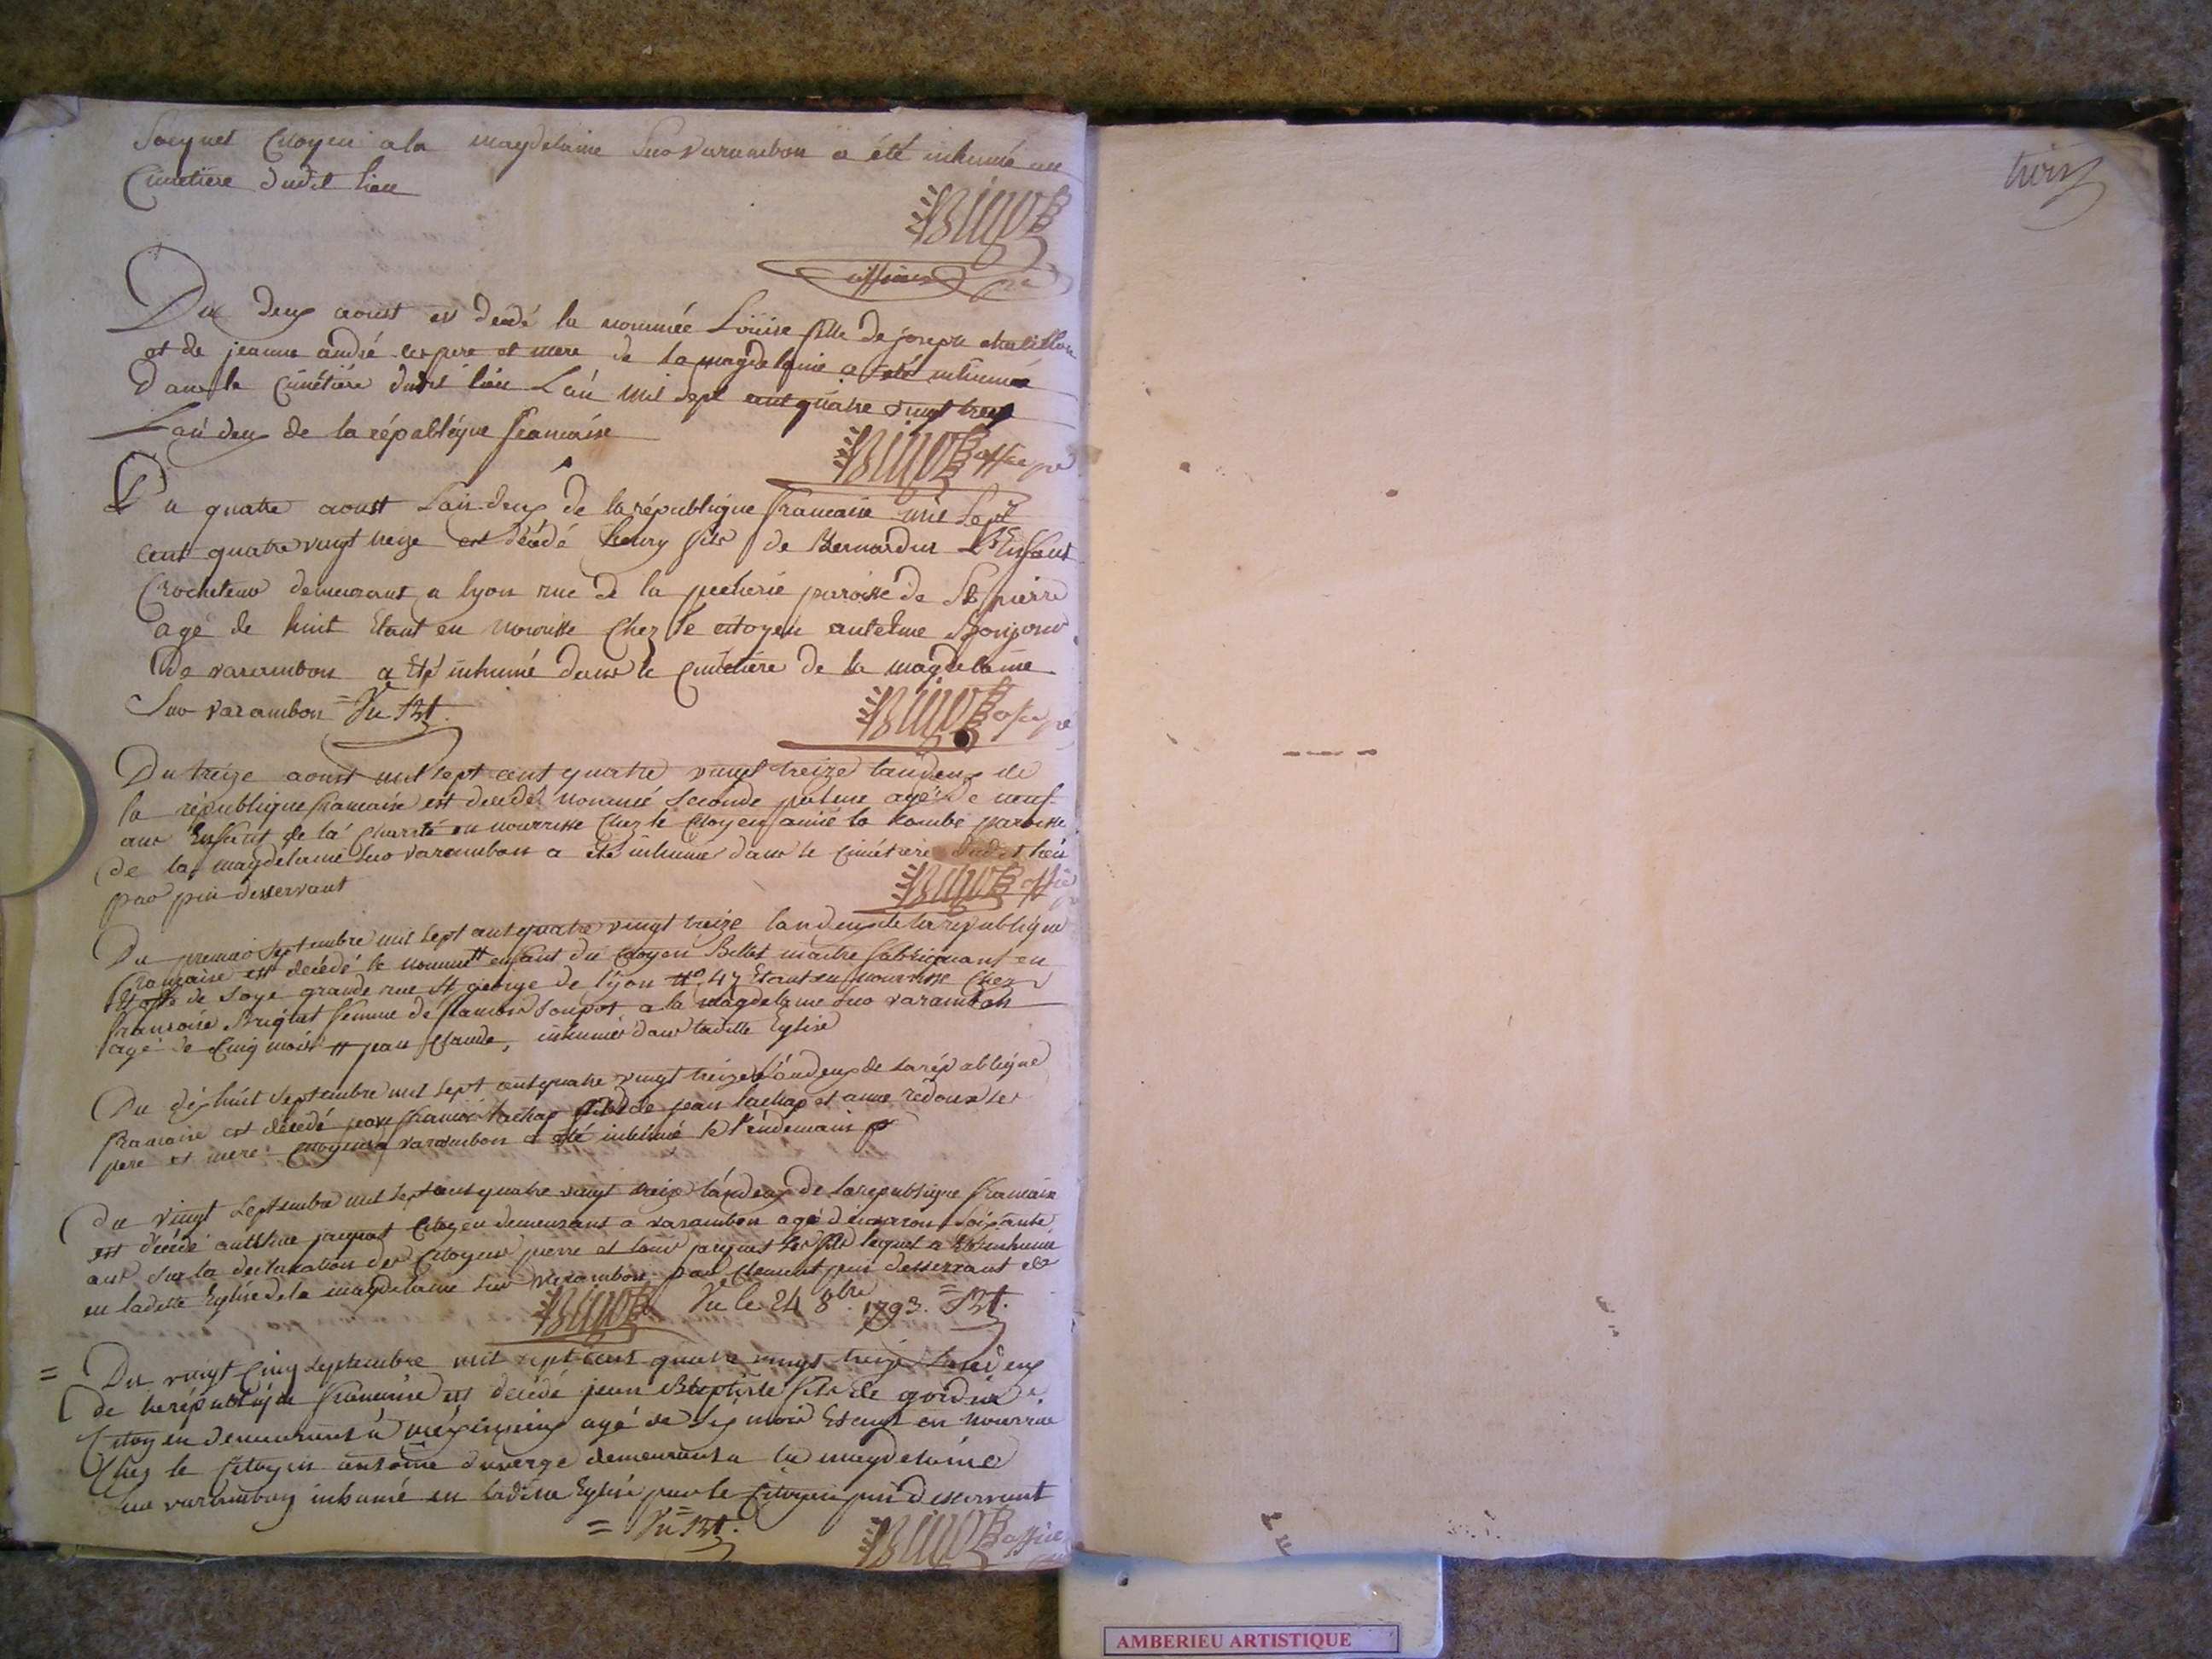 Jacquet Citoyen a la magdelaine sur varambon a été inhumé au
Cimetiere dudit lieu
officier
trois
Du deux aoust est decedé la nommée Louise fille de joseph chatillon
et de jeanne andré ses pere et mere de la magdelaine a été inhumée
Dans le Cimétiére dudit lieu L'an mil sept cent quatre vingt treize
L'an deux de la républéque francaise
offic
Du quatre aoust L'an deux de la république francaise mil sept
cent quatre vingt treize est décédé henry fils de Bernardin Enfant
Crocheteur demeurant a lyon rue de la pecherie paroisse de St pierre
agé de huit Etant en nourisse Chez le citoyen antelme Bonjour
de varambon a Eté inhumé dans le cimetiere de la magdelaine
Sur varambon = Vu
Du treize aoust mil sept cent quatre vingt treize l'an deux de
la république francaise est decedé nommé seconde agé de neuf
ans Enfant de la Charité en nourrisse Chez le Citoyen la Combe paroisse
de la magdelaine sur varambon a été inhumé dans le cimétiere dudit lieu
par pin desservant
Du premier septembre mil sept cent quatre vingt treize l'an deux de la république
francaise est décédé le nommé # enfant du citoyen Billet maitre fabriquant en
Etoffe de soye grande rue St george de lyon N° 47 Etant en nourrisse Chez
francoise Briquet femme de francois a la magdelaine sur varambon
agé de Cinq mois # jean Claude, inhumé dans ladite Eglise
Du dix huit septembre mil sept cent quatre vingt treize l'an deux de la république
francaise est décedé jean francois lachap fils de jean lachap et anne redoux ses
pere et mere Citoyens a varambon a été inhumé le l'endemain
Du vingt septembre mil sept cent quatre vingt treize l'an deux de la republique francaise
est décédé antelme jacquet Citoyen demeurant a varambon agé d'environ soixante
ans sur la déclaration des Citoyens pierre et jacquet ses fils lequel a été inhumé
en ladite Eglise de la magdelaine sur varambon par Clement pin desservant
Vu le 24 8bre 1793.
= Du vingt Cinq septembre mil sept cent quatre vingt treize l'an deux
de la république francaise est décédé jean Baptiste fils de
Citoyen demeurant a méximieux agé de six mois Etant en nourrise
Chez le Citoyen antoine duverge demeurant a la magdelaine
sur varambon inhumé en ladite Eglise par le Citoyen pin desservant
= Vu
AMBERIEU ARTISTIQUE